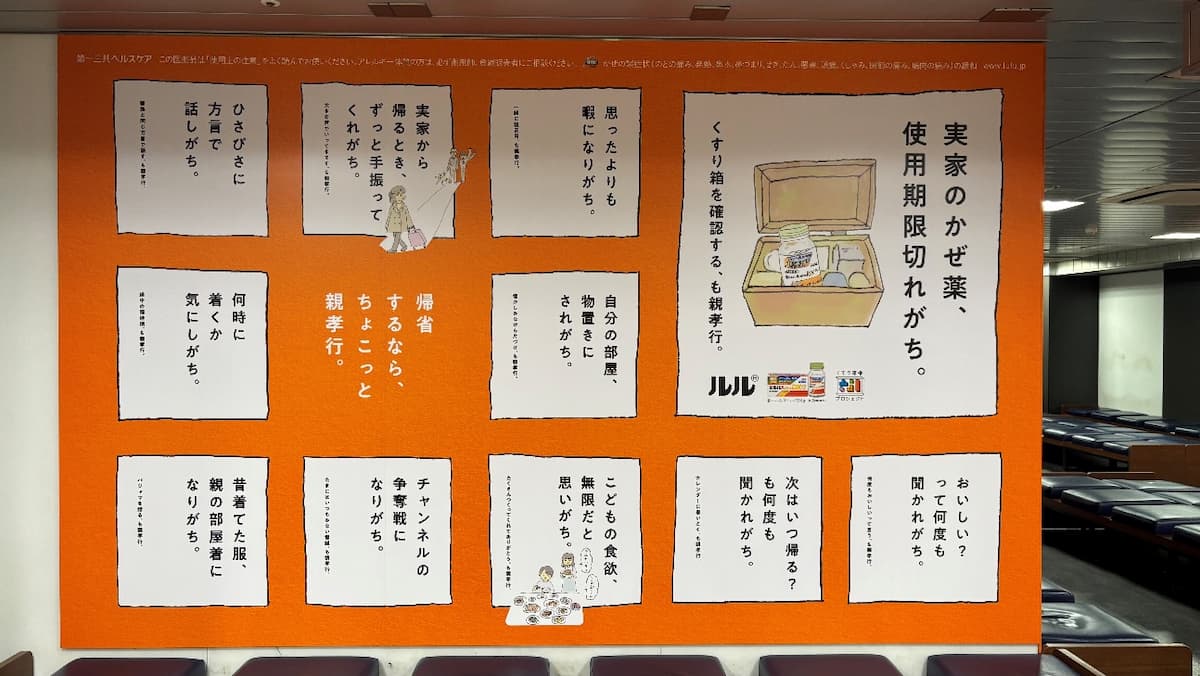 第一三共ヘルスケア この医薬品は「使用上の注意」をよく読んでお使いください。アレルギー体質の方は、必ず薬剤師、登録販売者にご相談ください。
かぜの諸症状(のどの痛み、発熱、鼻水、鼻づまり、せき、たん、悪寒、頭痛、くしゃみ、関節の痛み、筋肉の痛み)の緩和 www.lulu.jp
実家のかぜ薬、
使用期限切れがち。
くすり箱を確認する、も親孝行。
ルル®
プロジェクト
思ったよりも
暇になりがち。
実家から
帰るとき、
ずっと手振って
くれがち。
ひさびさに
方言で
話しがち。
自分の部屋、
物置きに
されがち。
帰省
するなら、
ちょこっと
親孝行。
何時に
着くか
気にしがち。
おいしい?
って何度も
聞かれがち。
何度もおいしいって言う、も親孝行。
次はいつ帰る?
も何度も
聞かれがち。
カレンダーに書いとく、も親孝行
こどもの食欲、
無限だと
思いがち。
たくさんつくってくれてありがとう、も親孝行
チャンネルの
争奪戦に
なりがち。
昔着てた服、
親の部屋着に
なりがち。